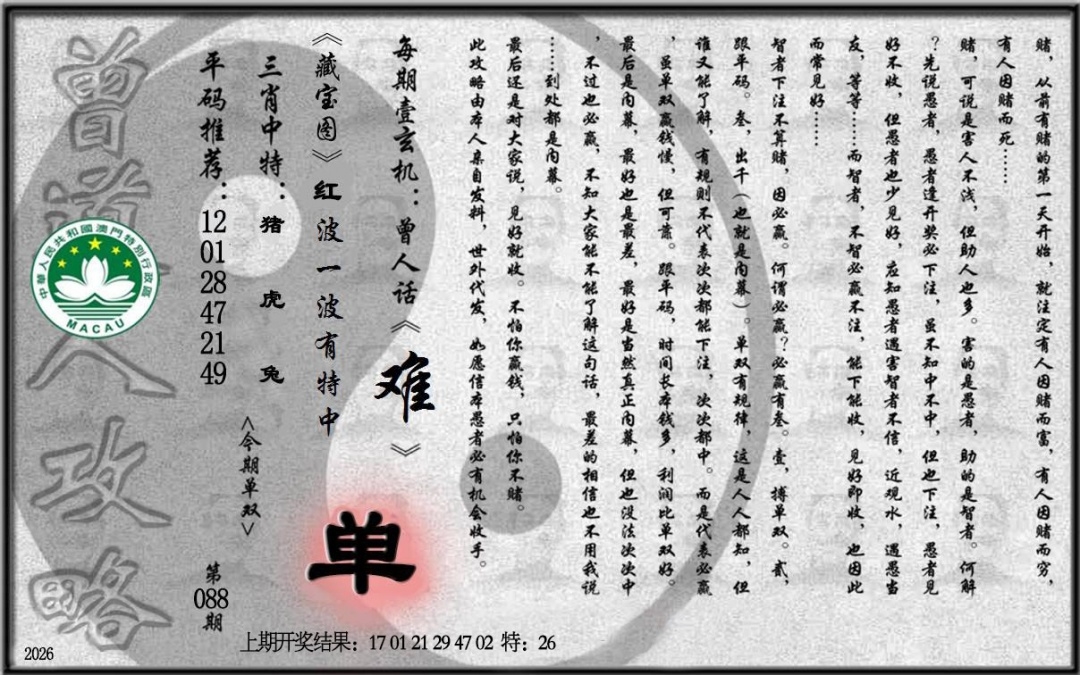 赌，从前有赌的第一天开始，就注定有人因赌而富，有人因赌而穷，
有人因赌而死……
赌，可说是害人不浅，但助人也多。害的是愚者，助的是智者。何解
？先说愚者，愚者逢开奖必下注，虽不知中不中，但也下注，愚者见
好不收，但愚者也少见好，应知愚者遇害智者不信，近观水，遇愚当
友，等等……而智者，不智必赢不注，能下能收，见好即收，也因此
而常见好……
智者下注不算赌，因必赢。何谓必赢？必赢有叁。壹，搏单双。贰，
跟平码。叁，出千（也就是内幕）。单双有规律，这是人人都知，但
谁又能了解，有规则不代表次次都能下注，次次都中。而是代表必赢
，虽单双赢钱慢，但可靠。跟平码，时间长本钱多，利润比单双好。
最后是内幕，最好也是最差，最好是当然真正内幕，但也没法次次中
，不过也必赢，不知大家能不能了解这句话，最差的相信也不用我说
……到处都是内幕。
最后还是对大家说，见好就收。不怕你赢钱，只怕你不赌。
此攻略由本人亲自发料，世外代发，如愿信本愚者必有机会收手。
每期壹玄机：曾人话《难》
《藏宝图》红波一波有特中
单
三肖中特：猪 虎 兔
<今期单双>
平码推荐：12 01 28 47 21 49
第088期
曾道人攻略
中華人民共和國澳門特別行政區
MACAU
上期开奖结果：17 01 21 29 47 02 特：26
2026